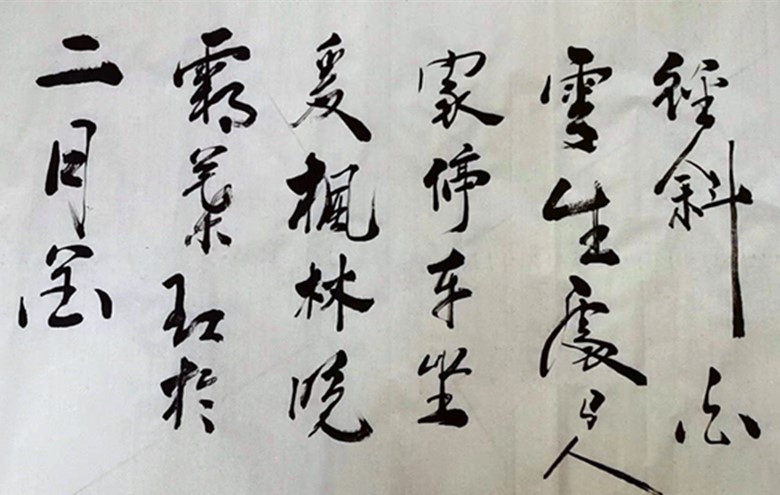 徑斜白
雲生處有人
家停车坐
爱楓林晚
霜葉红於
二月花